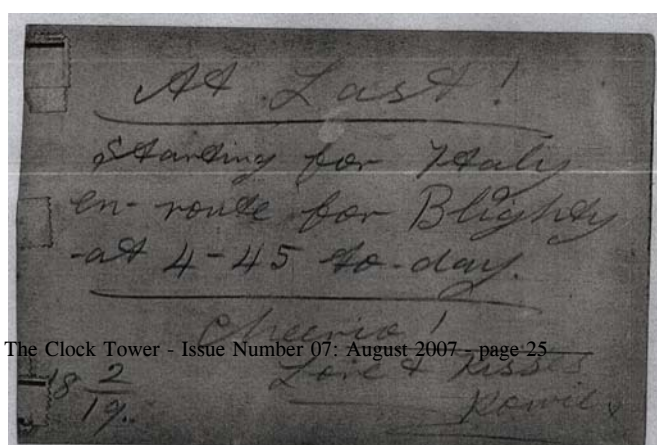 At Last!
Starting for Italy
en-route for Blighty
-at 4-45 to-day.
Cheerio!
The Clock Tower - Issue Number 07: August 2007 - page 25
Love & Kisses
18 2/19.